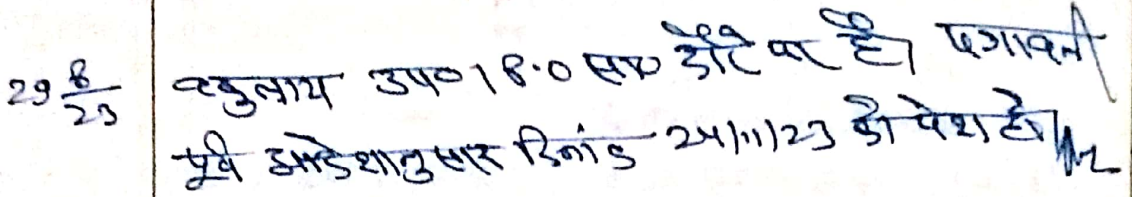 29 8/23 वकुलाय उप० । B.O साo दौरे पर है। पत्रावली
पूर्व आदेशानुसार दिनांक 24/11/23 को पेश हो।